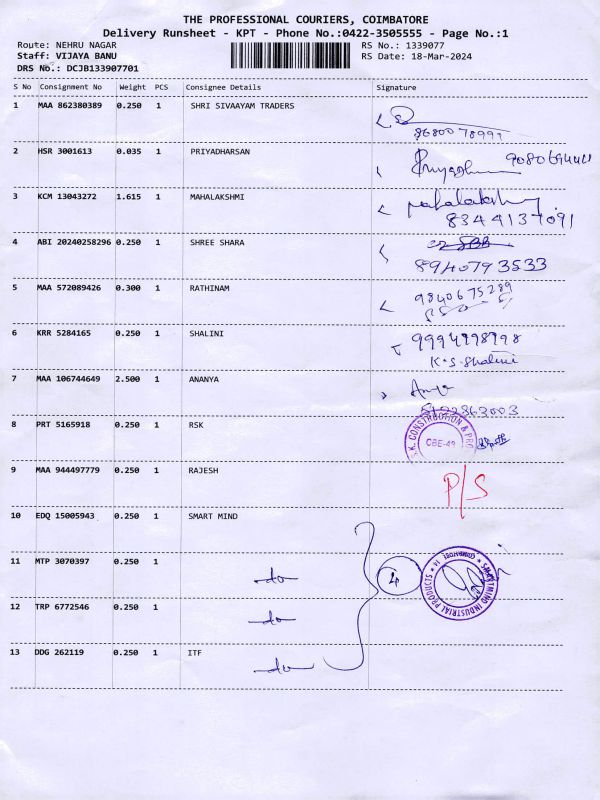 THE PROFESSIONAL COURIERS, COIMBATORE
Delivery Runsheet - KPT - Phone No.:0422-3505555 - Page No.:1
Route: NEHRU NAGAR RS No.: 1339077
Staff: VIJAYA BANU RS Date: 18-Mar-2024
DRS No.: DCJB133907701
S No Consignment No Weight PCS Consignee Details Signature
1 MAA 862380389 0.250 1 SHRI SIVAAYAM TRADERS
8680078999
2 HSR 3001613 0.035 1 PRIYADHARSAN
3 KCM 13043272 1.615 1 MAHALAKSHMI mahalakshmi
8344137091
4 ABI 20240258296 0.250 1 SHREE SHARA
8940793533
5 MAA 572089426 0.300 1 RATHINAM 9840675289
6 KRR 5284165 0.250 1 SHALINI 9994998998
K.S.Shalini
7 MAA 106744649 2.500 1 ANANYA
8 PRT 5165918 0.250 1 RSK
S.K. CONSTRUCTION & PRO
CBE-49
9 MAA 944497779 0.250 1 RAJESH P/S
10 EDQ 15005943 0.250 1 SMART MIND
11 MTP 3070397 0.250 1 -do- 4
SMARTMIND INDUSTRIAL PRODUCTS * COIMBATORE
12 TRP 6772546 0.250 1 -do-
13 DDG 262119 0.250 1 ITF -do-